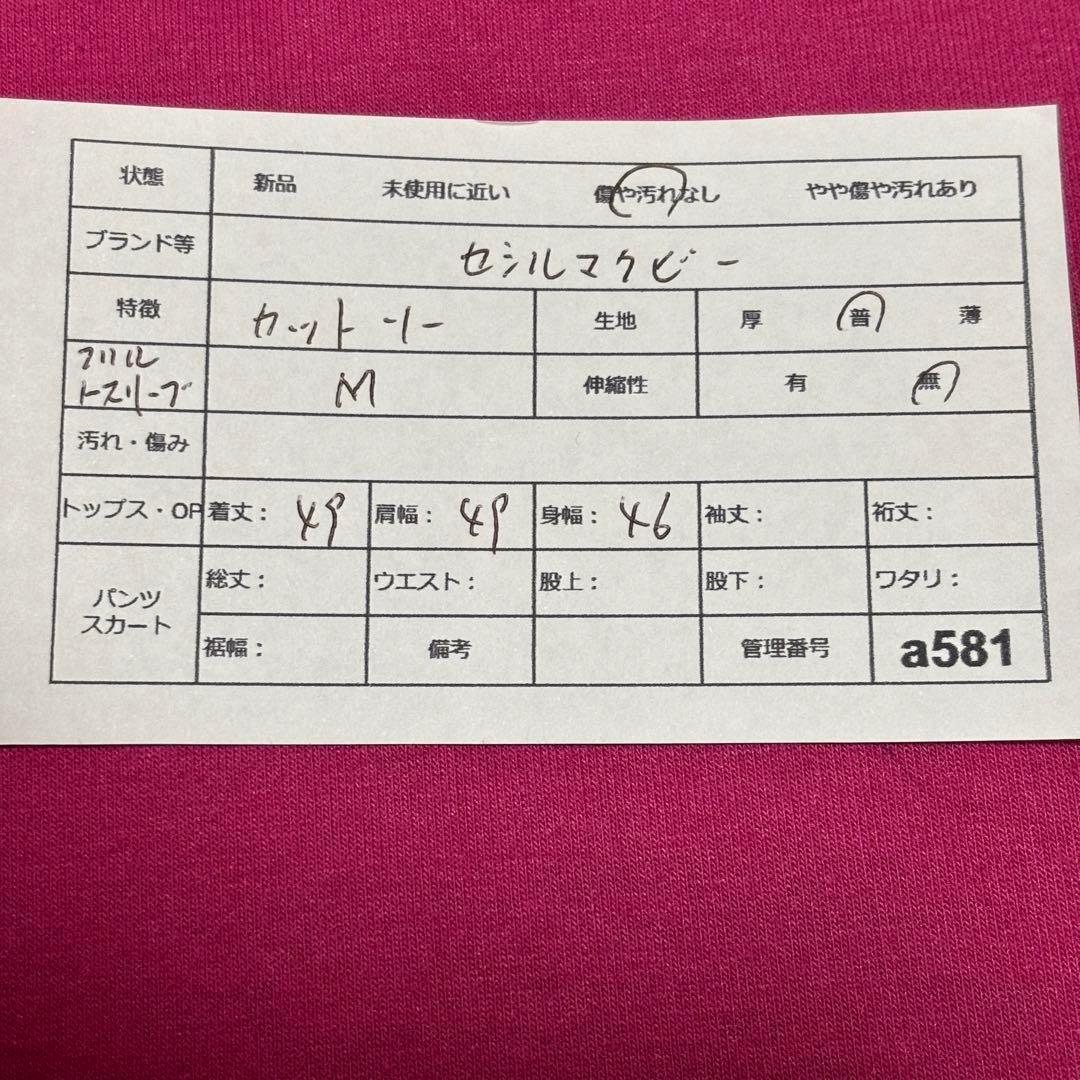 状態 新品 未使用に近い 傷や汚れなし やや傷や汚れあり
ブランド等 セシルマクビー
特徴 カットソー 生地 厚 普 薄
フリル
トスリーブ M 伸縮性 有 無
汚れ・傷み
トップス・OP 着丈： 49 肩幅： 49 身幅： 46 袖丈： 裄丈：
パンツ
スカート 総丈： ウエスト： 股上： 股下： ワタリ：
裾幅： 備考 管理番号 a581